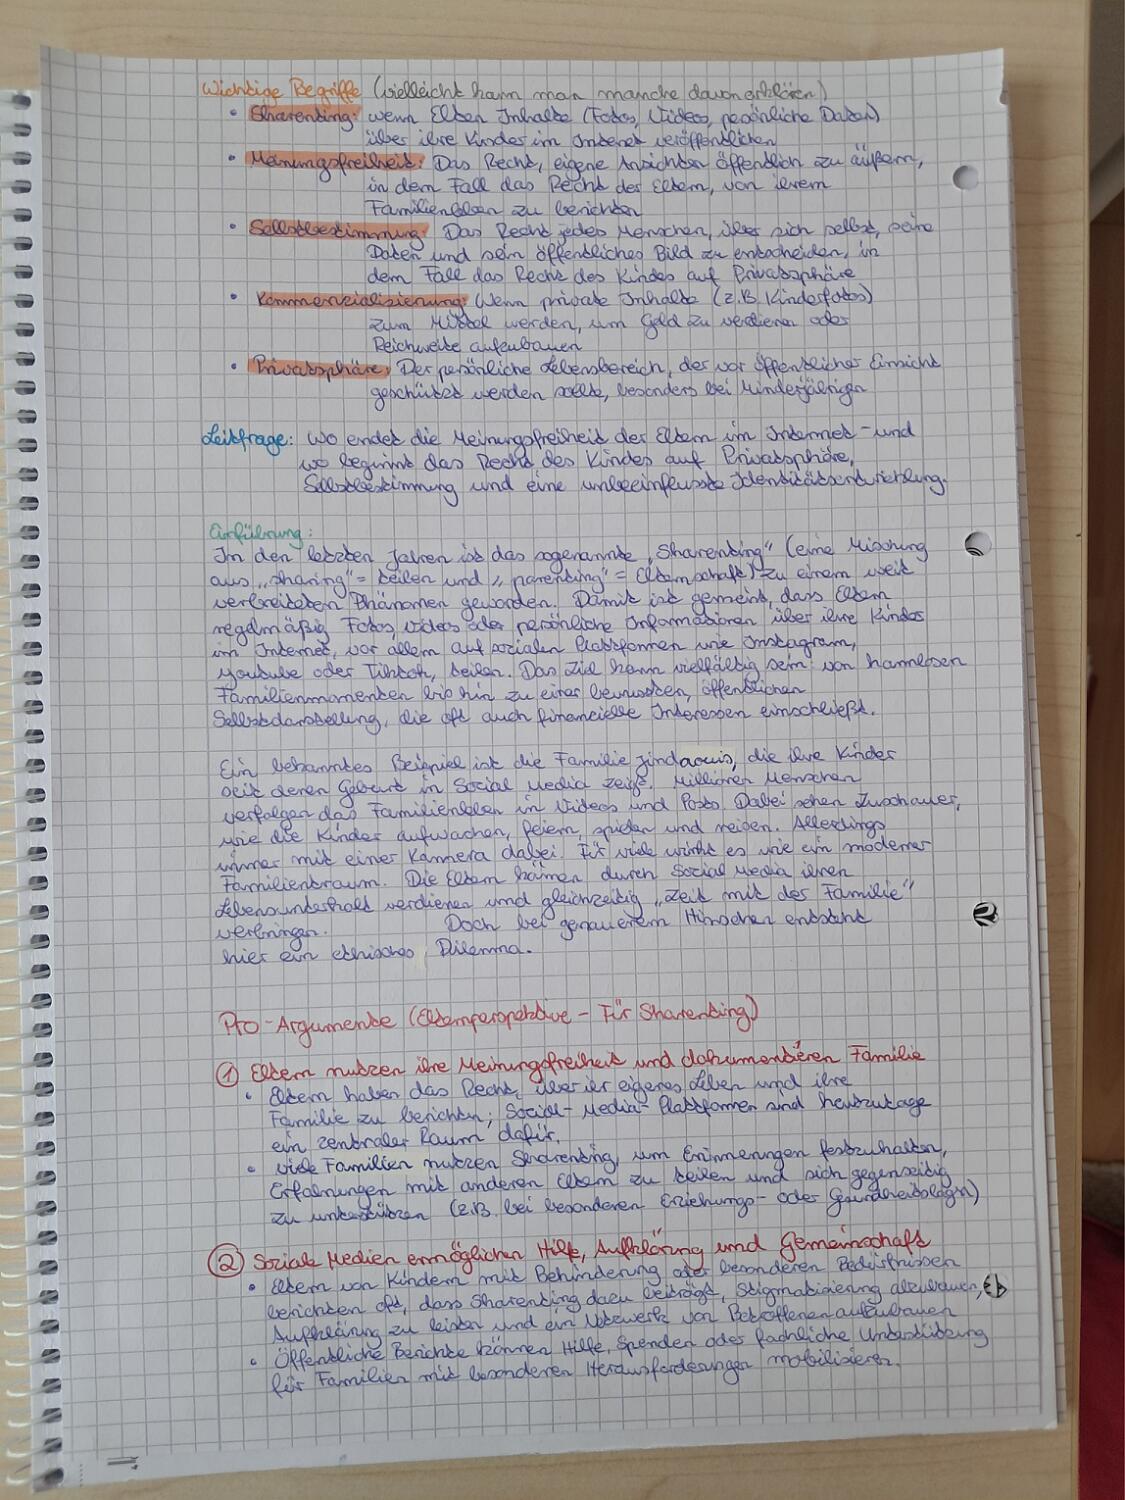 Wichtige Begriffe (vielleicht kann man manche davon erklären)
• Sharenting: wenn Eltern Inhalte (Fotos, Videos, persönliche Daten)
über ihre Kinder im Internet veröffentlichen
• Meinungsfreiheit: Das Recht, eigene Ansichten öffentlich zu äußern,
in dem Fall das Recht der Eltern, von ihrem
Familienleben zu berichten
• Selbstbestimmung: Das Recht jedes Menschen, über sich selbst, seine
Daten und sein öffentliches Bild zu entscheiden, in
dem Fall das Recht des Kindes auf Privatsphäre
• Kommerzialisierung: Wenn private Inhalte (z.B. Kinderfotos)
zum Mittel werden, um Geld zu verdienen oder
Reichweite aufzubauen
• Privatsphäre: Der persönliche Lebensbereich, der vor öffentlicher Einsicht
geschützt werden sollte, besonders bei Minderjährigen
Leitfrage: Wo endet die Meinungsfreiheit der Eltern im Internet - und
wo beginnt das Recht des Kindes auf Privatsphäre,
Selbstbestimmung und eine unbeeinflusste Identitätsentwicklung.
Einführung:
In den letzten Jahren ist das sogenannte „Sharenting" (eine Mischung
aus „sharing" = teilen und „parenting" = Elternschaft) zu einem weit
verbreiteten Phänomen geworden. Damit ist gemeint, dass Eltern
regelmäßig Fotos, Videos oder persönliche Informationen über ihre Kinder
im Internet, vor allem auf sozialen Plattformen wie Instagram,
Youtube oder Tiktok, teilen. Das Ziel kann vielfältig sein: von harmlosen
Familienmomenten bis hin zu einer bewussten, öffentlichen
Selbstdarstellung, die oft auch finanzielle Interessen einschließt.
Ein bekanntes Beispiel ist die Familie die ihre Kinder
seit deren Geburt in Social Media zeigt. Millionen Menschen
verfolgen das Familienleben in Videos und Posts. Dabei sehen Zuschauer,
wie die Kinder aufwachen, feiern, spielen und reisen. Allerdings
immer mit einer Kamera dabei. Für viele wirkt es wie ein moderner
Familientraum. Die Eltern können durch Social Media ihren
Lebensunterhalt verdienen und gleichzeitig „Zeit mit der Familie"
verbringen. Doch bei genauerem Hinsehen entsteht
hier ein ethisches Dilemma.
Pro-Argumente (Elternperspektive - Für Sharenting)
① Eltern nutzen ihre Meinungsfreiheit und dokumentieren Familie
• Eltern haben das Recht, über ihr eigenes Leben und ihre
Familie zu berichten; Social-Media-Plattformen sind heutzutage
ein zentraler Raum dafür.
• viele Familien nutzen Sharenting, um Erinnerungen festzuhalten,
Erfahrungen mit anderen Eltern zu teilen und sich gegenseitig
zu unterstützen (z.B. bei besonderen Erziehungs- oder Gesundheitslagen)
② Soziale Medien ermöglichen Hilfe, Aufklärung und Gemeinschaft
• Eltern von Kindern mit Behinderung oder besonderen Bedürfnissen
berichten oft, dass Sharenting dazu beiträgt, Stigmatisierung abzubauen,
Aufklärung zu leisten und ein Netzwerk von Betroffenen aufzubauen
• Öffentliche Berichte können Hilfe, Spenden oder fachliche Unterstützung
für Familien mit besonderen Herausforderungen mobilisieren.